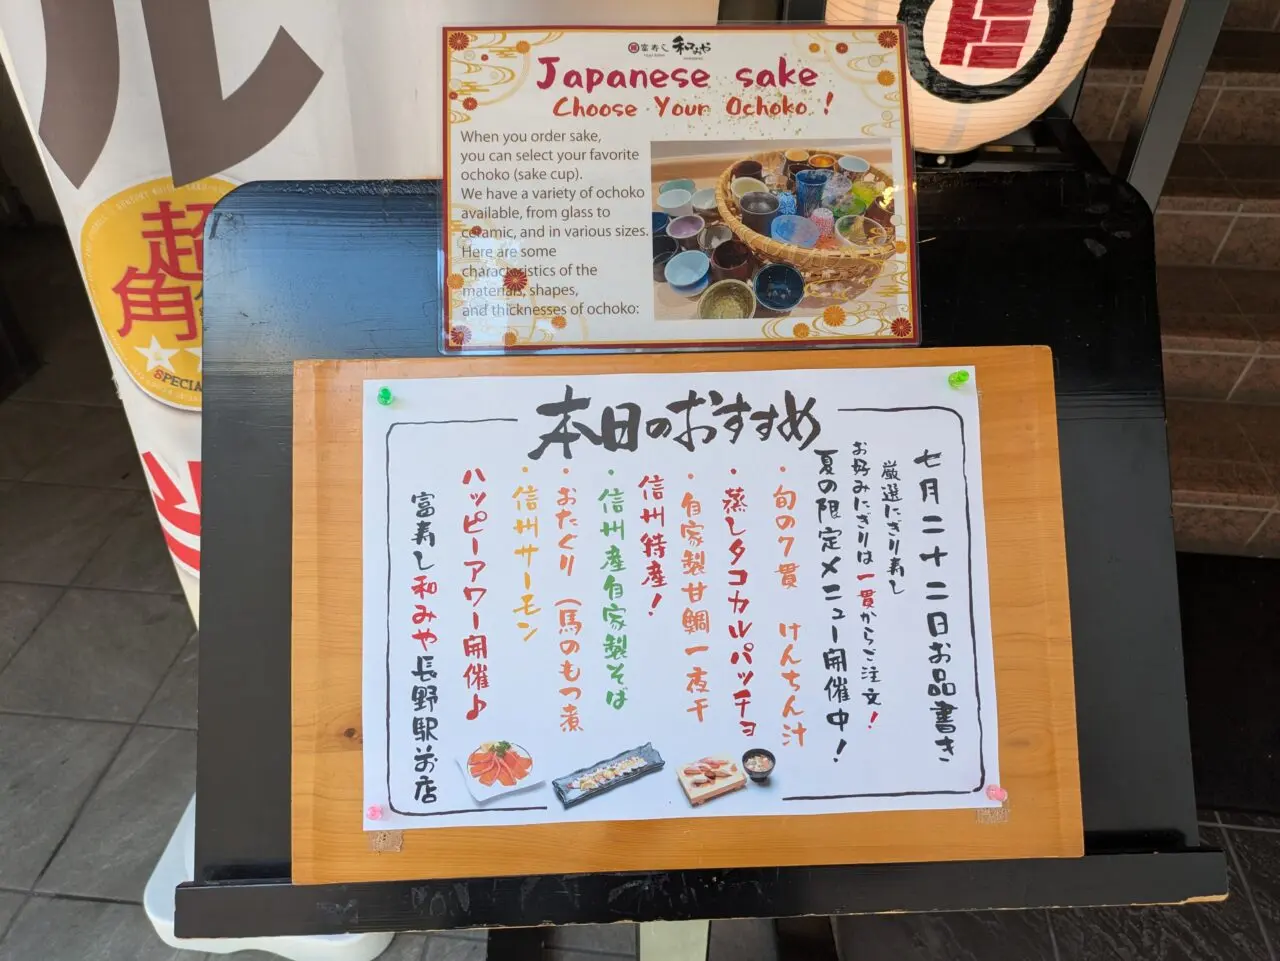 富寿し 和みや
Japanese sake
Choose Your Ochoko !
When you order sake,
you can select your favorite
ochoko (sake cup).
We have a variety of ochoko
available, from glass to
ceramic, and in various sizes.
Here are some
characteristics of the
materials, shapes,
and thicknesses of ochoko:
ル
超
角
SPECIA
本日のおすすめ
七月二十二日お品書き
厳選にぎり寿し
お好みにぎりは一貫からご注文!
夏の限定メニュー開催中!
・旬の7貫 けんちん汁
・蒸しタコカルパッチョ
・自家製甘鯛一夜干
信州特産!
・信州産自家製そば
・おたぐり(馬のもつ煮
・信州サーモン
ハッピーアワー開催♪
富寿し和みや長野駅前店